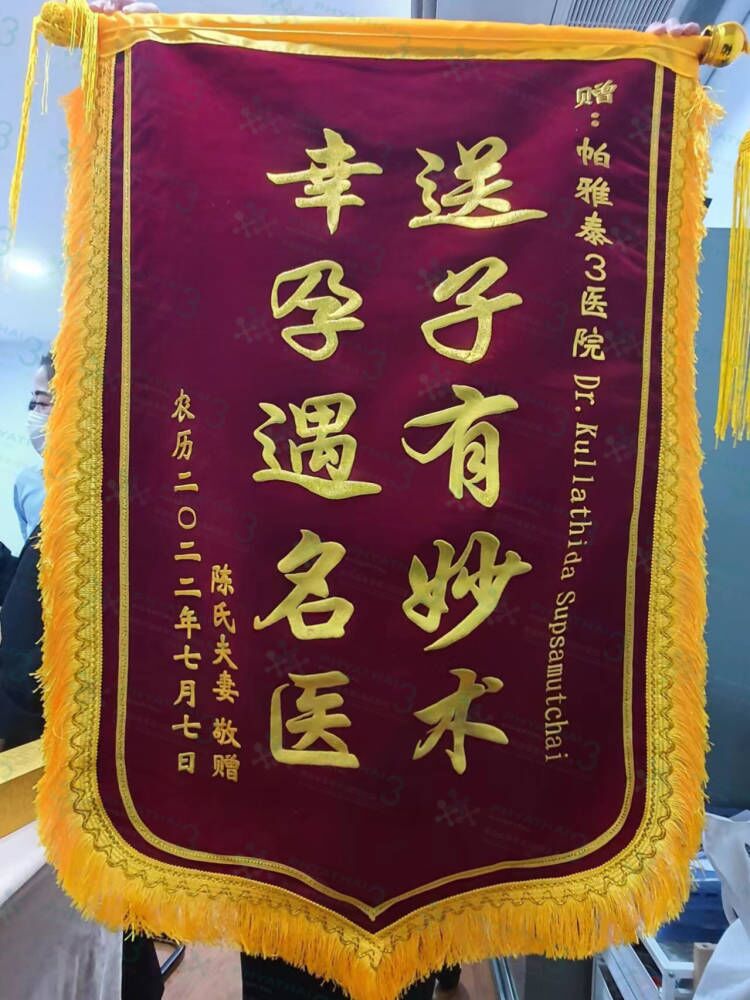 赠：帕雅泰3医院 Dr. Kullathida Supsamutchai
送子有妙术
幸孕遇名医
陈氏夫妻 敬赠
农历二〇二二年七月七日